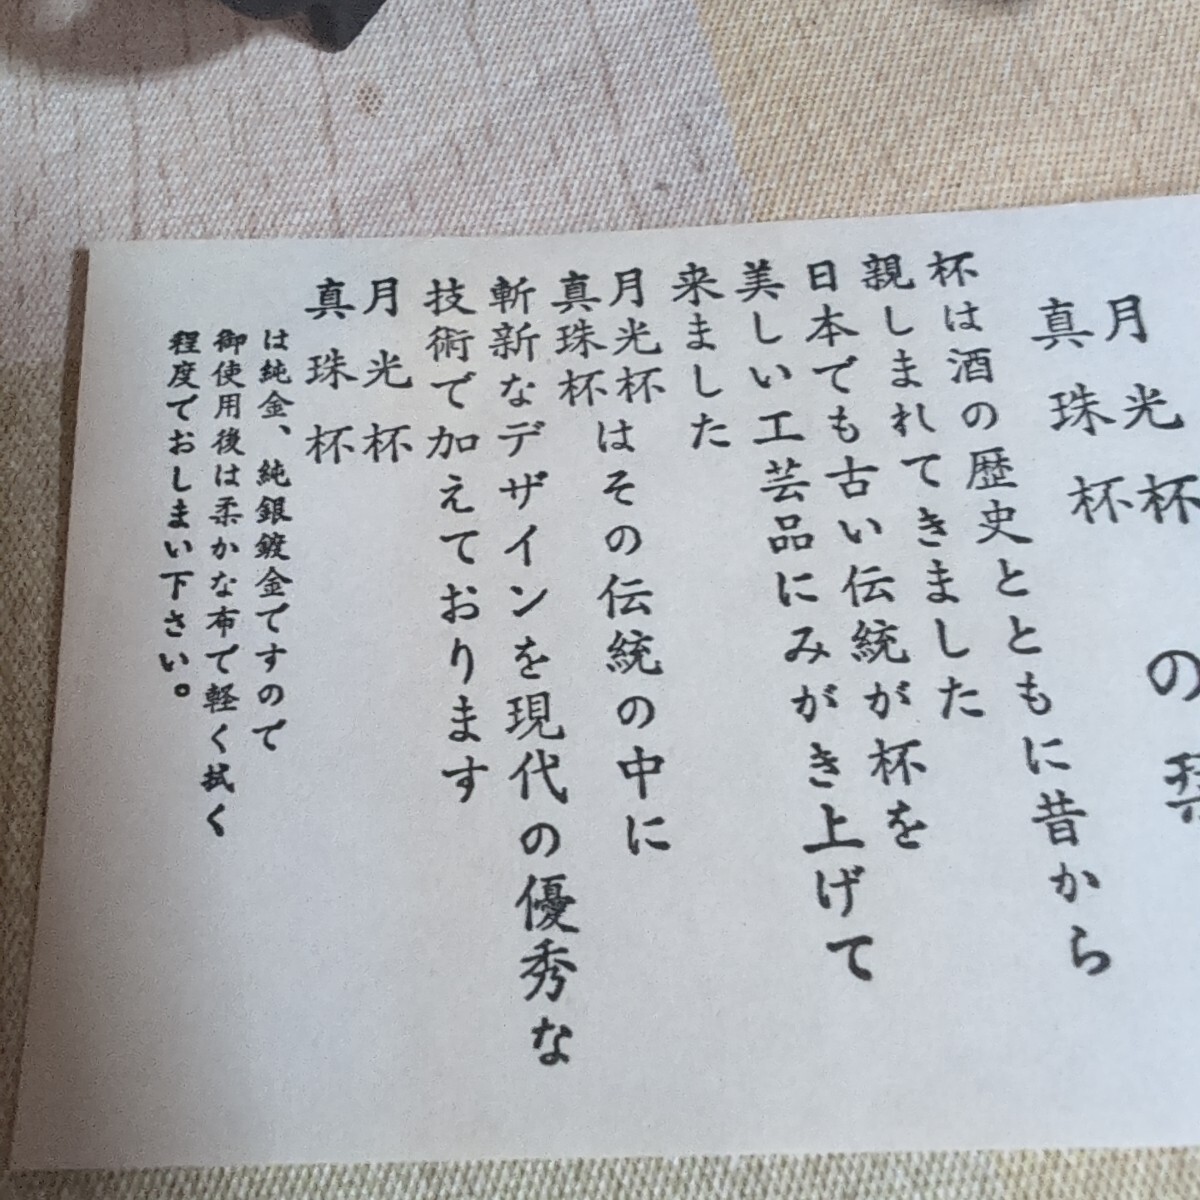 月光杯
真珠杯
の栞
杯は酒の歴史とともに昔から
親しまれてきました
日本でも古い伝統が杯を
美しい工芸品にみがき上げて
来ました
月光杯
真珠杯
はその伝統の中に
斬新なデザインを現代の優秀な
技術で加えております
月光杯
真珠杯
は純金、純銀鍍金ですので
御使用後は柔かな布で軽く拭く
程度でおしまい下さい。